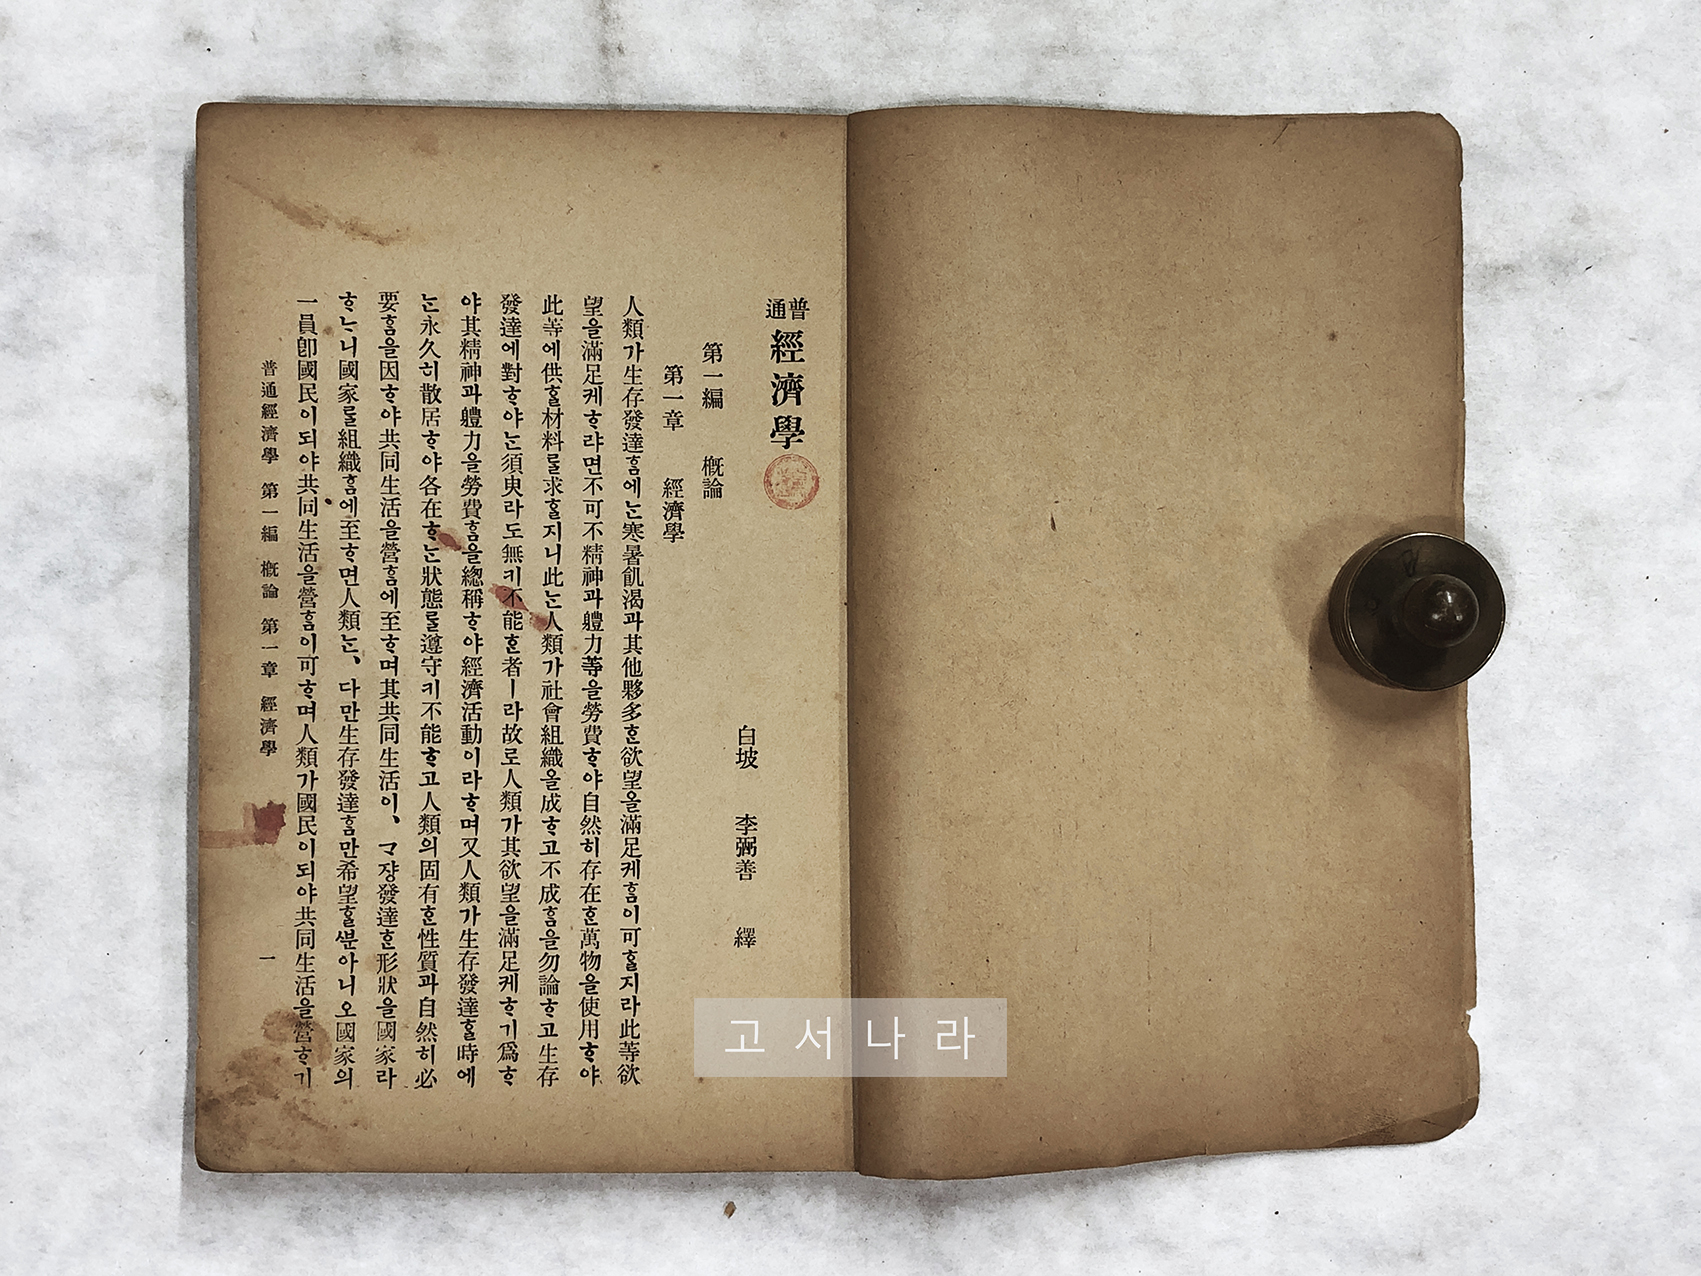 普通 經濟學
白坡 李弼善 繹
第一編 槪論
第一章 經濟學
人類가生存發達ᄒᆞᆷ에ᄂᆞᆫ寒暑飢渴과其他夥多ᄒᆞᆫ欲望을滿足케ᄒᆞᆷ이可ᄒᆞᆯ지라此等欲
望을滿足케ᄒᆞ랴면不可不精神과軆力等을勞費ᄒᆞ야自然히存在ᄒᆞᆫ萬物을使用ᄒᆞ야
此等에供ᄒᆞᆯ材料ᄅᆞᆯ求ᄒᆞᆯ지니此ᄂᆞᆫ人類가社會組織을成ᄒᆞ고不成ᄒᆞᆷ을勿論ᄒᆞ고生存
發達에對ᄒᆞ야ᄂᆞᆫ須臾라도無키不能ᄒᆞᆫ者ㅣ라故로人類가其欲望을滿足케ᄒᆞ기爲ᄒᆞ
야其精神과軆力을勞費ᄒᆞᆷ을總稱ᄒᆞ야經濟活動이라ᄒᆞ며又人類가生存發達ᄒᆞᆯ時에
ᄂᆞᆫ永久히散居ᄒᆞ야各在ᄒᆞᄂᆞᆫ狀態ᄅᆞᆯ遵守키不能ᄒᆞ고人類의固有ᄒᆞᆫ性質과自然히必
要ᄒᆞᆷ을因ᄒᆞ야共同生活을營ᄒᆞᆷ에至ᄒᆞ며其共同生活이、ᄀᆞ쟝發達ᄒᆞᆫ形狀을國家라
ᄒᆞᄂᆞ니國家ᄅᆞᆯ組織ᄒᆞᆷ에至ᄒᆞ면人類ᄂᆞᆫ、다만生存發達ᄒᆞᆷ만希望ᄒᆞᆯᄲᅮᆫ아니오國家의
一員卽國民이되야共同生活을營ᄒᆞᆷ이可ᄒᆞ며人類가國民이되야共同生活을營ᄒᆞ기
普通經濟學 第一編 槪論 第一章 經濟學 一
고서나라